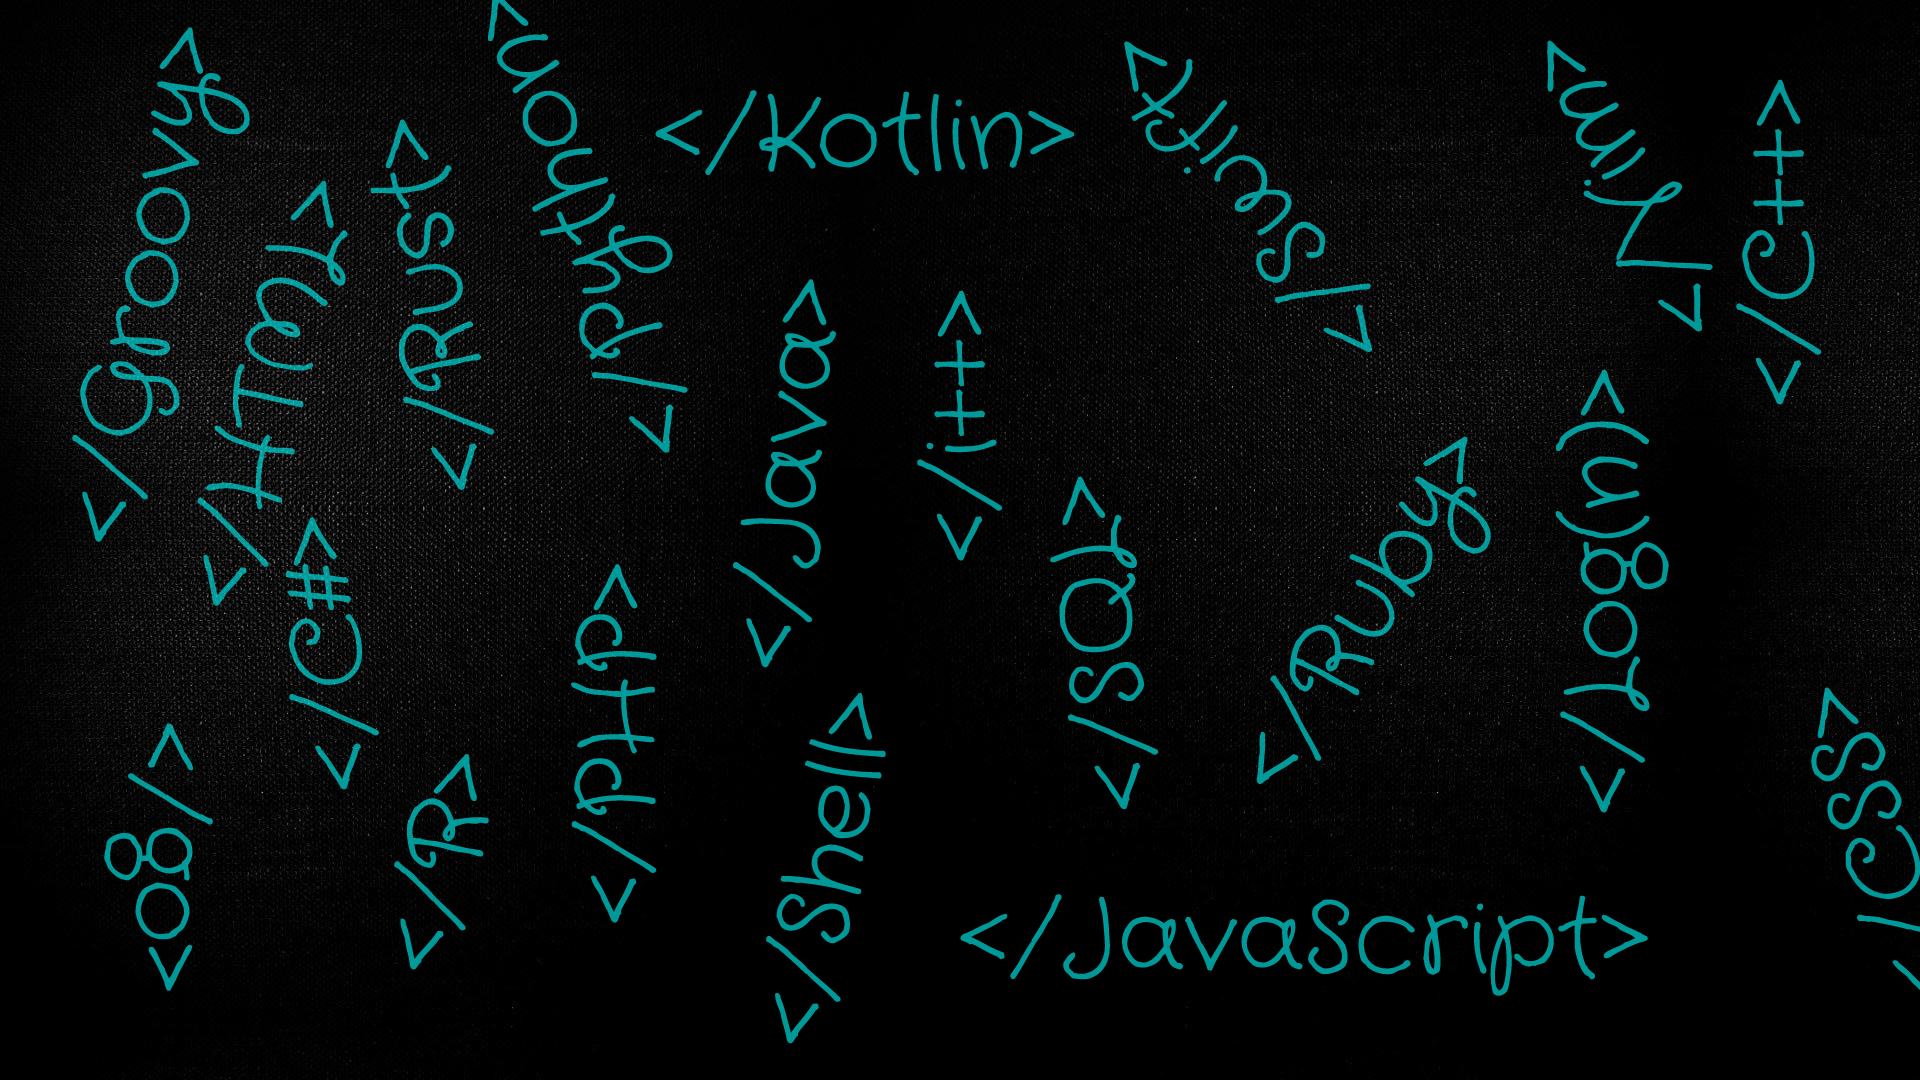 </Groovy>
</HTML>
</Rust>
</Python>
</Kotlin>
</Swift>
</Vim>
</C++>
</Java>
</i++>
</SQL>
</Ruby>
</Log(n)>
</C#>
</PHP>
<og/>
</R>
</Shell>
</JavaScript>
</CSS>